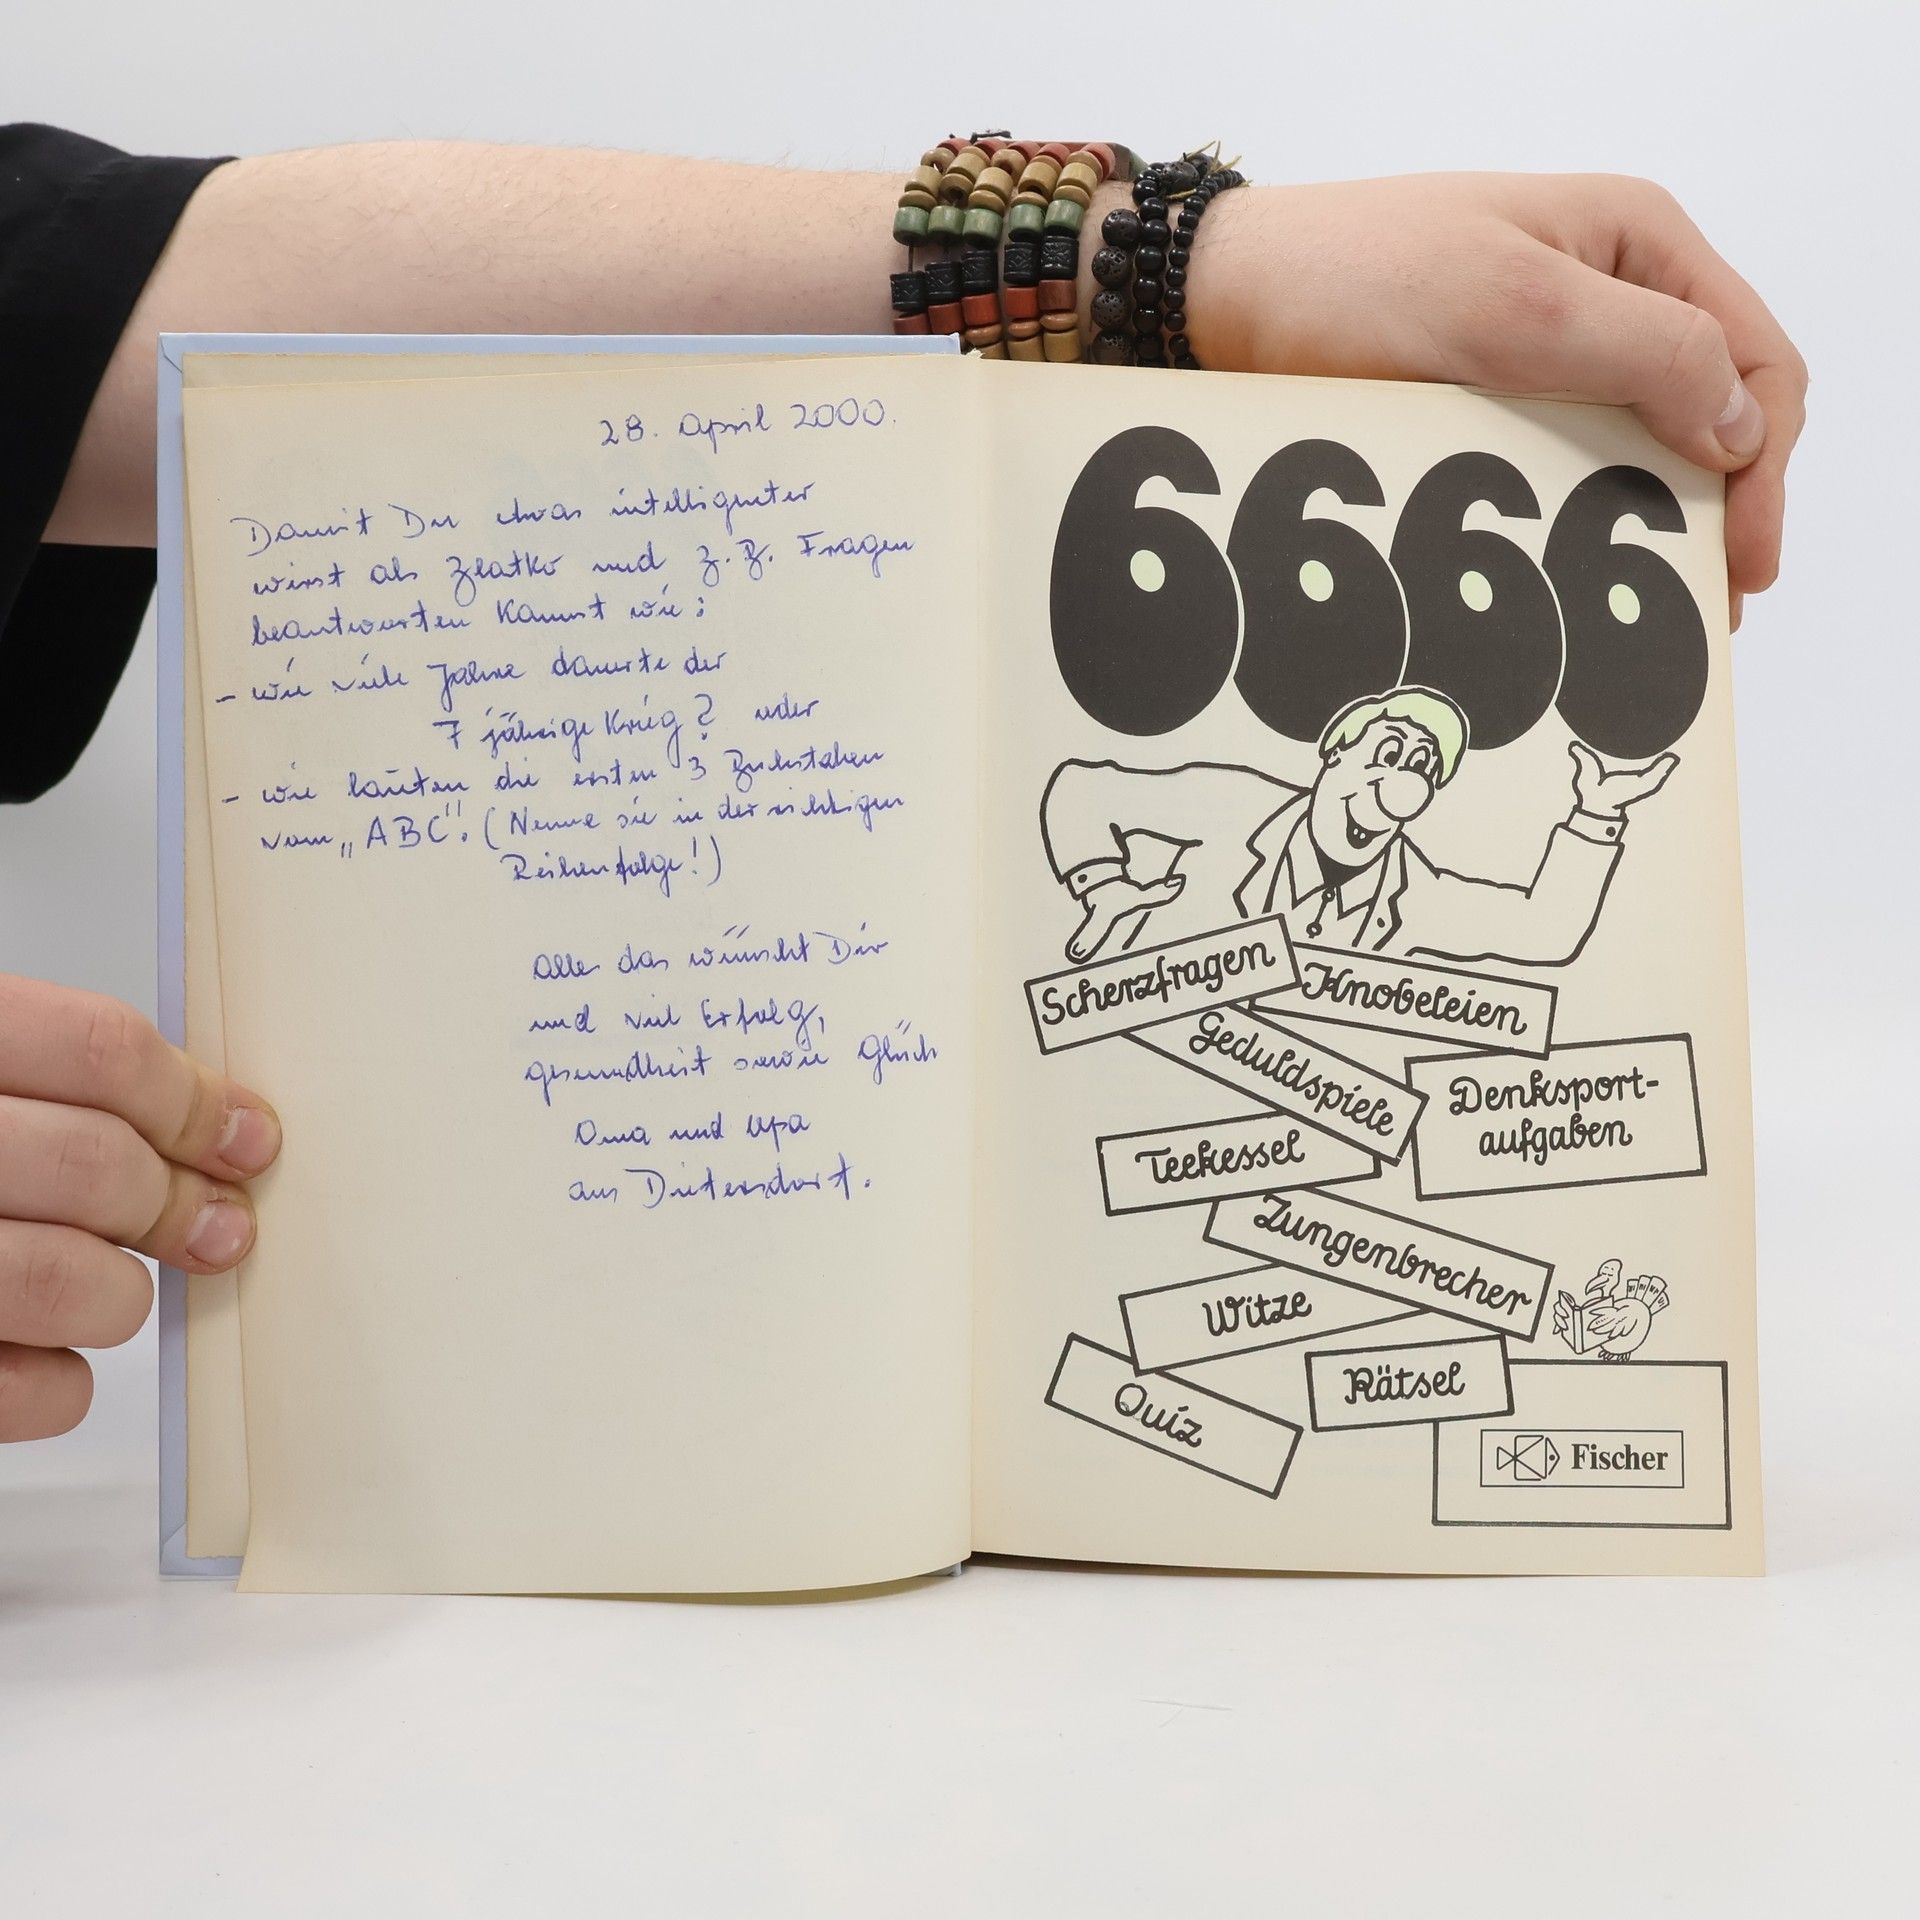 28. April 2000.
Damit Du etwas intelligenter
wirst als Zlatko und z.B. Fragen
beantworten kannst wie:
- wie viele Jahre dauerte der
7 jährige Krieg? oder
- wie lauten die ersten 3 Buchstaben
vom „ABC". (Nenne sie in der richtigen
Reihenfolge!)
Alles das wünscht Dir
und viel Erfolg,
Gesundheit sowie Glück
Oma und Opa
aus Dietersdorf.
6666
Scherzfragen
Knobeleien
Geduldspiele
Denksport-
aufgaben
Teekessel
Zungenbrecher
Witze
Rätsel
Quiz
Fischer